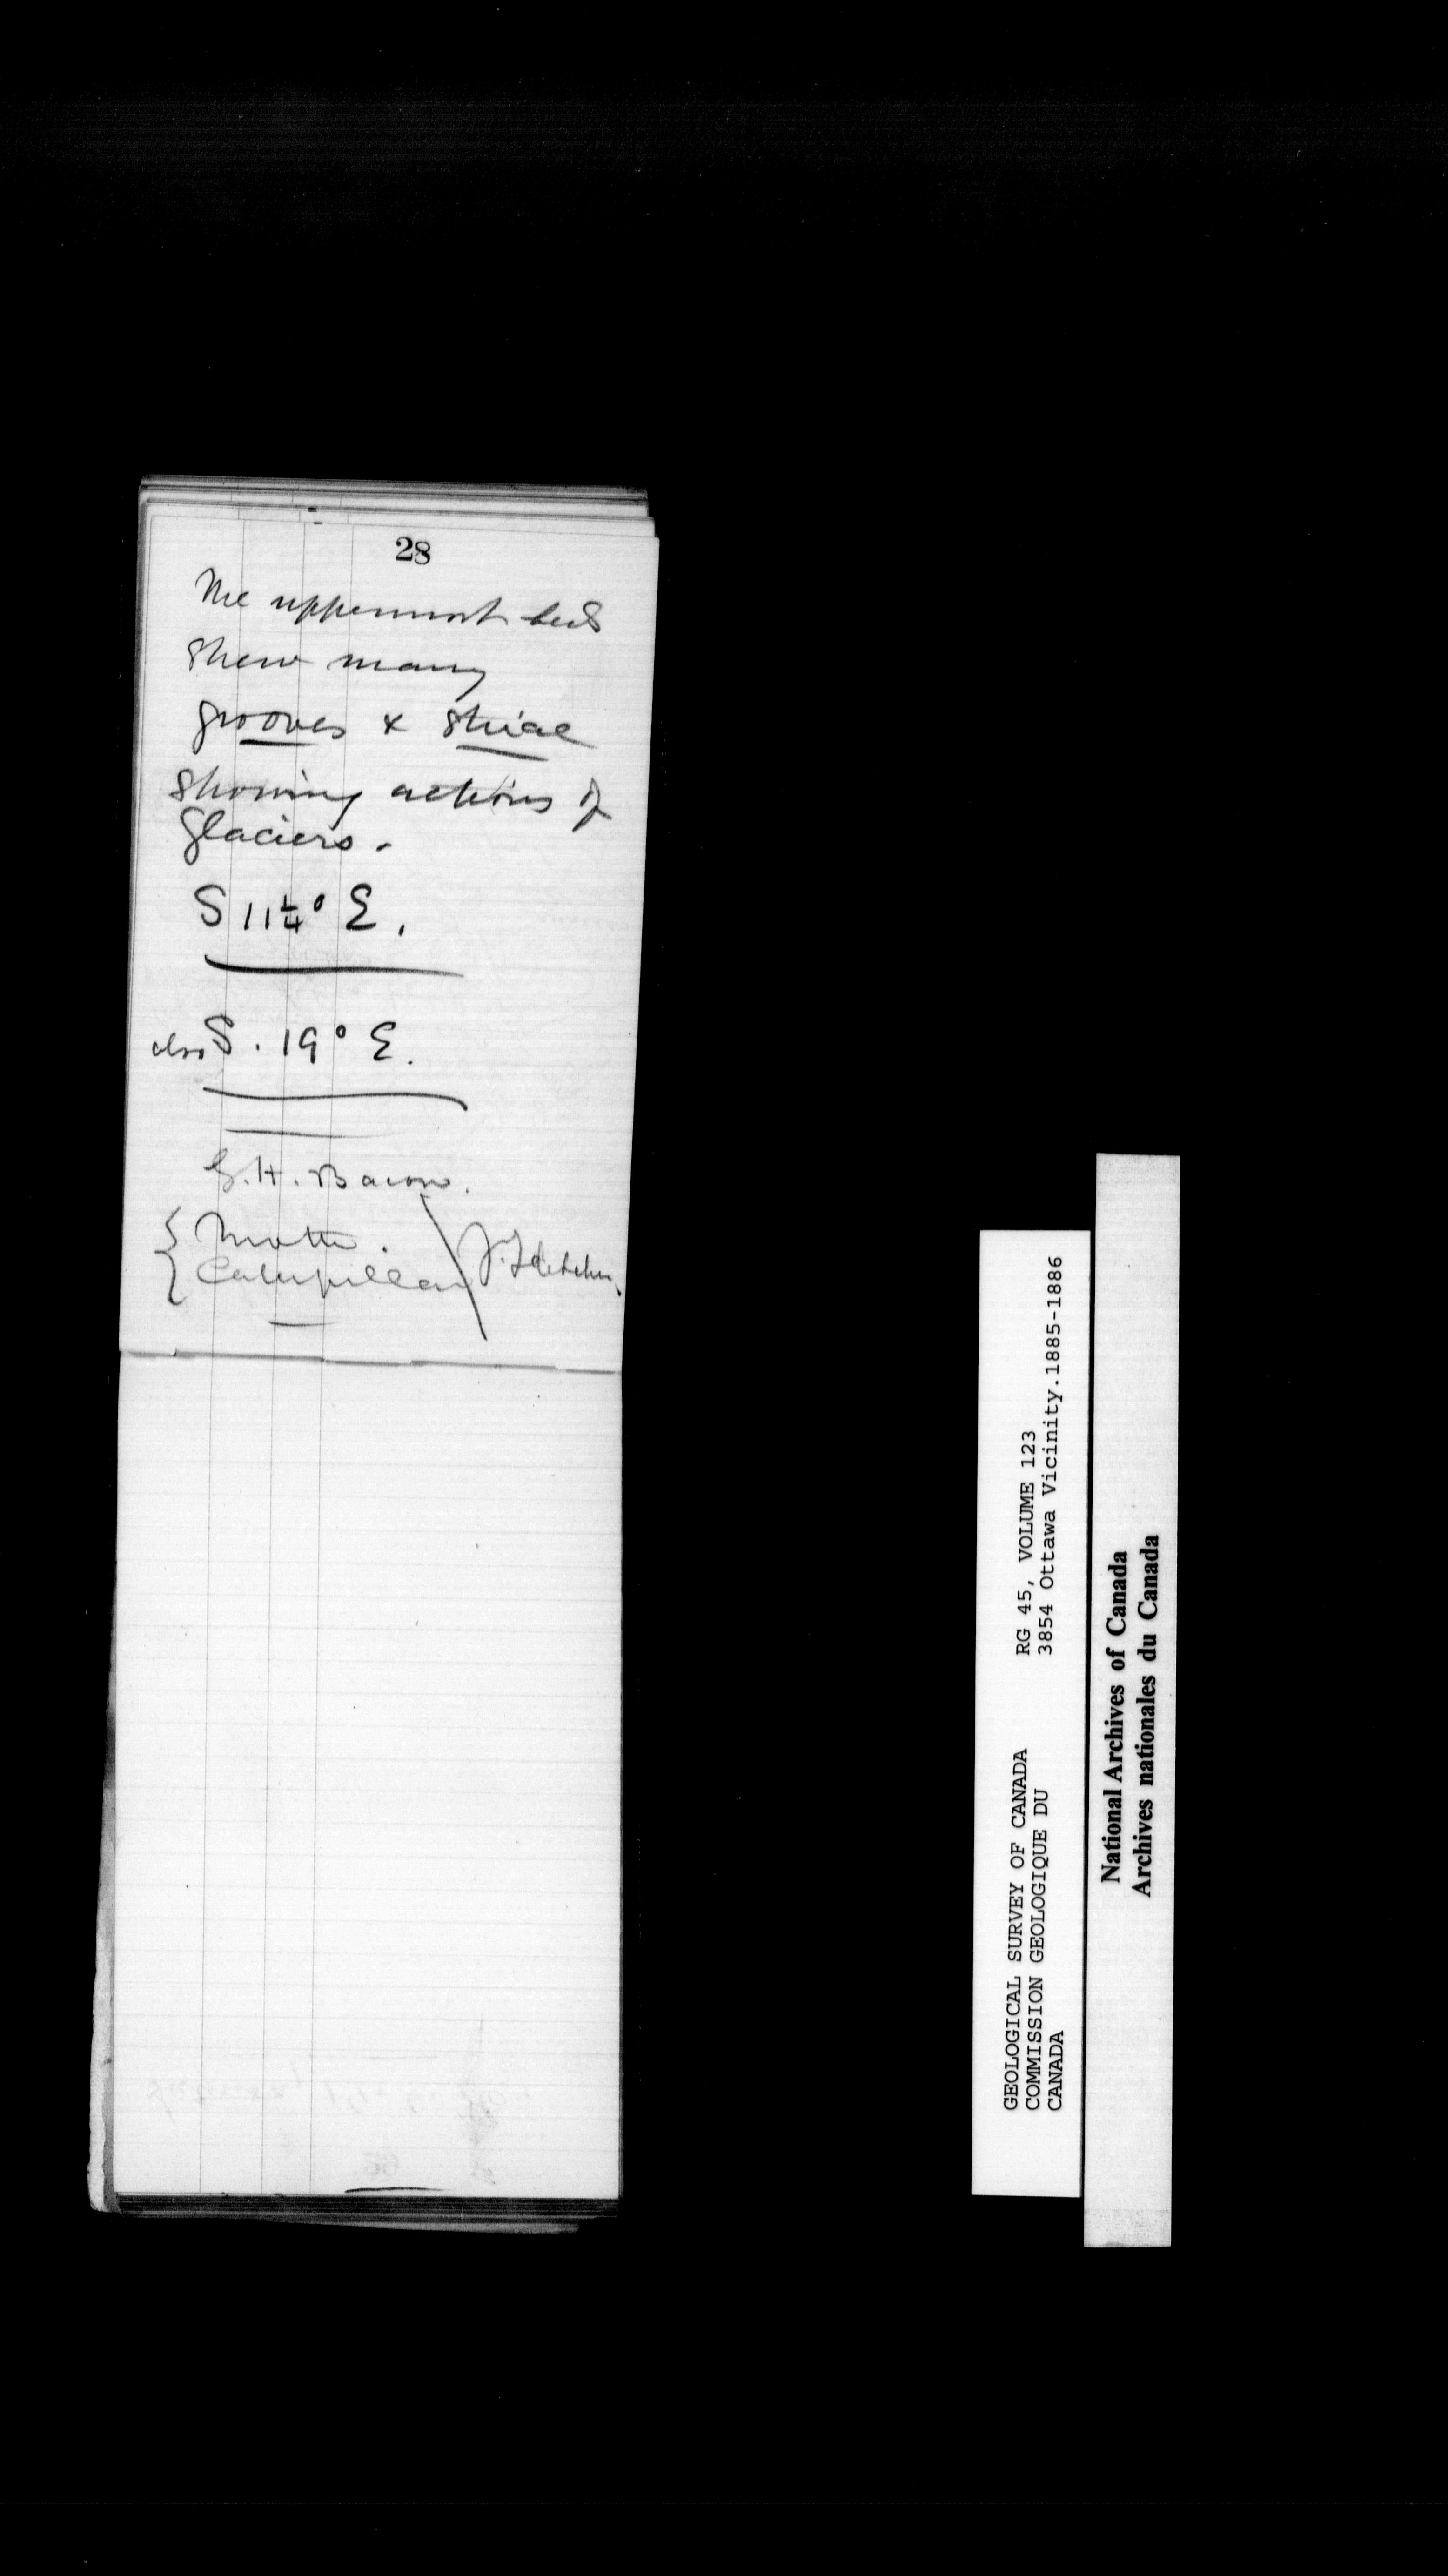 28
The uppermost beds
shew many
grooves & striae
showing actions of
glaciers.
S 11¼° E.
also S. 19° E.
G. H. Bacon.
Moth.
Caterpillar J. Fletcher
GEOLOGICAL SURVEY OF CANADA
COMMISSION GEOLOGIQUE DU
CANADA
RG 45, VOLUME 123
3854 Ottawa Vicinity.1885-1886
National Archives of Canada
Archives nationales du Canada